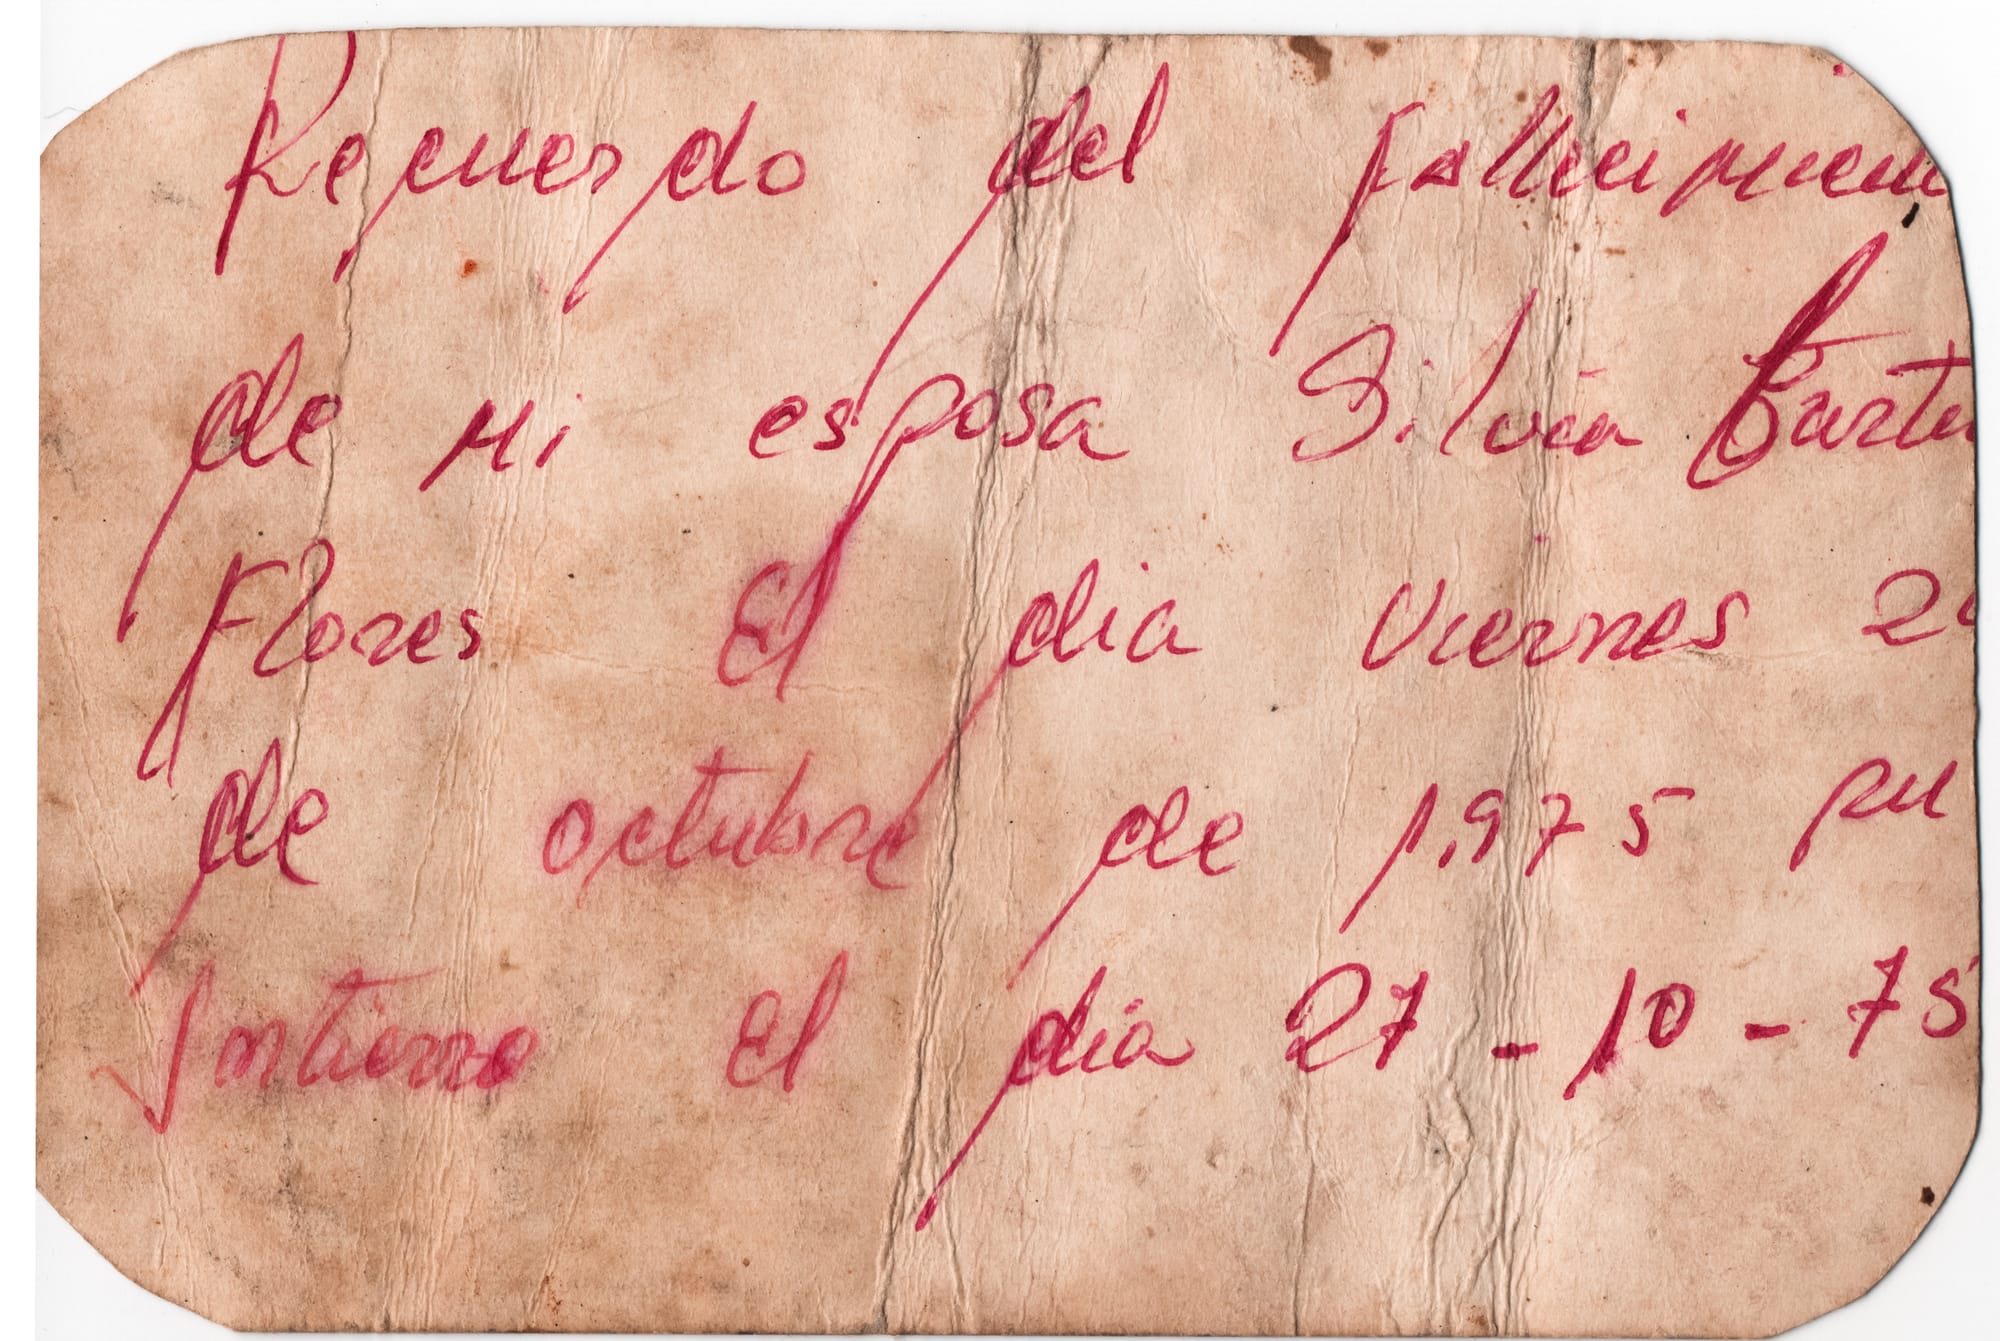 Recuerdo del fallecimien
de mi esposa Silvia
Flores El dia Viernes 24
de octubre de 1.975 su
Intierro El dia 27-10-75